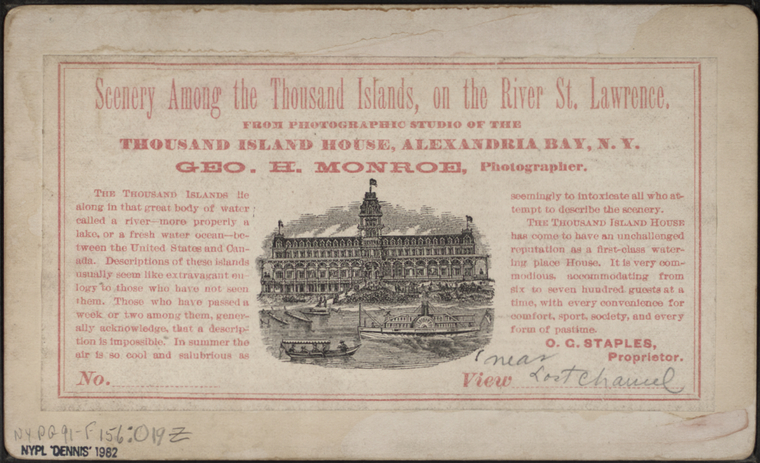 Scenery Among the Thousand Islands, on the River St. Lawrence.
FROM PHOTOGRAPHIC STUDIO OF THE
THOUSAND ISLAND HOUSE, ALEXANDRIA BAY, N. Y.
GEO. H. MONROE, Photographer.
THE THOUSAND ISLANDS lie
along in that great body of water
called a river—more properly a
lake, or a fresh water ocean—be-
tween the United States and Can-
ada. Descriptions of these islands
usually seem like extravagant eu-
logy to those who have not seen
them. Those who have passed a
week or two among them, gener-
ally acknowledge, that a descrip-
tion is impossible. In summer the
air is so cool and salubrious as
seemingly to intoxicate all who at-
tempt to describe the scenery.
THE THOUSAND ISLAND HOUSE
has come to have an unchallenged
reputation as a first-class water-
ing place House. It is very com-
modious, accommodating from
six to seven hundred guests at a
time, with every convenience for
comfort, sport, society, and every
form of pastime.
O. G. STAPLES,
Proprietor.
No.
View near Lost Channel
NYPG91-F156:019Z
NYPL 'DENNIS' 1982